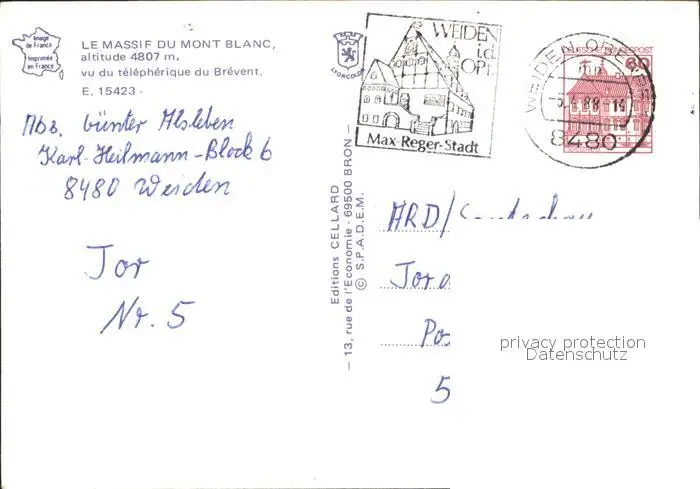 Image
de France
Imprimée
en France
LE MASSIF DU MONT BLANC,
altitude 4807 m,
vu du téléphérique du Brévent.
E. 15423
LYONCOLOR
WEIDEN
i.d.
OPf.
Max-Reger-Stadt
WEIDEN, OBERPF
8480
DEUTSCHE BUNDESPOST
60
Abs. Günter Alsleben
Karl-Heilmann-Block 6
8480 Weiden
Tor
Nr. 5
Editions CELLARD
— 13, rue de l'Economie - 69500 BRON —
© S.P.A.D.E.M.
ARD/Sportschau
Po
5
privacy protection
Datenschutz